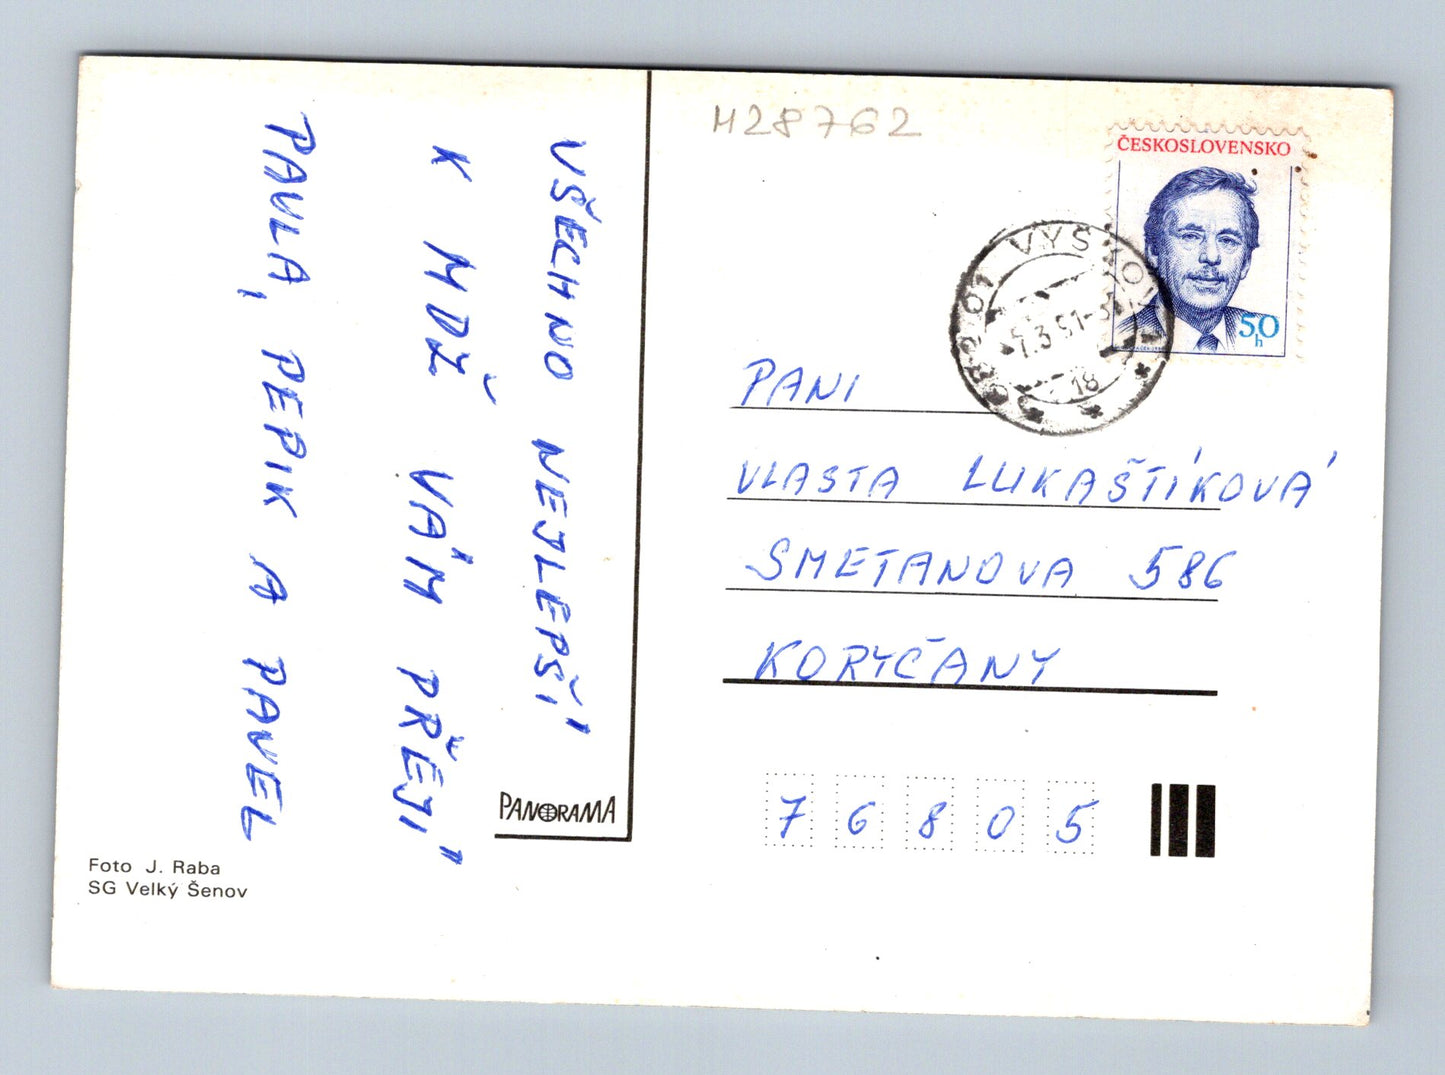 VŠECHNO NEJLEPŠÍ
K MDŽ VÁM PŘEJÍ
PAVLA, PEPIK A PAVEL
PANORAMA
Foto J. Raba
SG Velký Šenov
M28762
ČESKOSLOVENSKO
50
h
682 01 VYŠKOV 1
7.3.91
18
PANI
VLASTA LUKAŠTÍKOVÁ
SMETANOVA 586
KORYČANY
76805